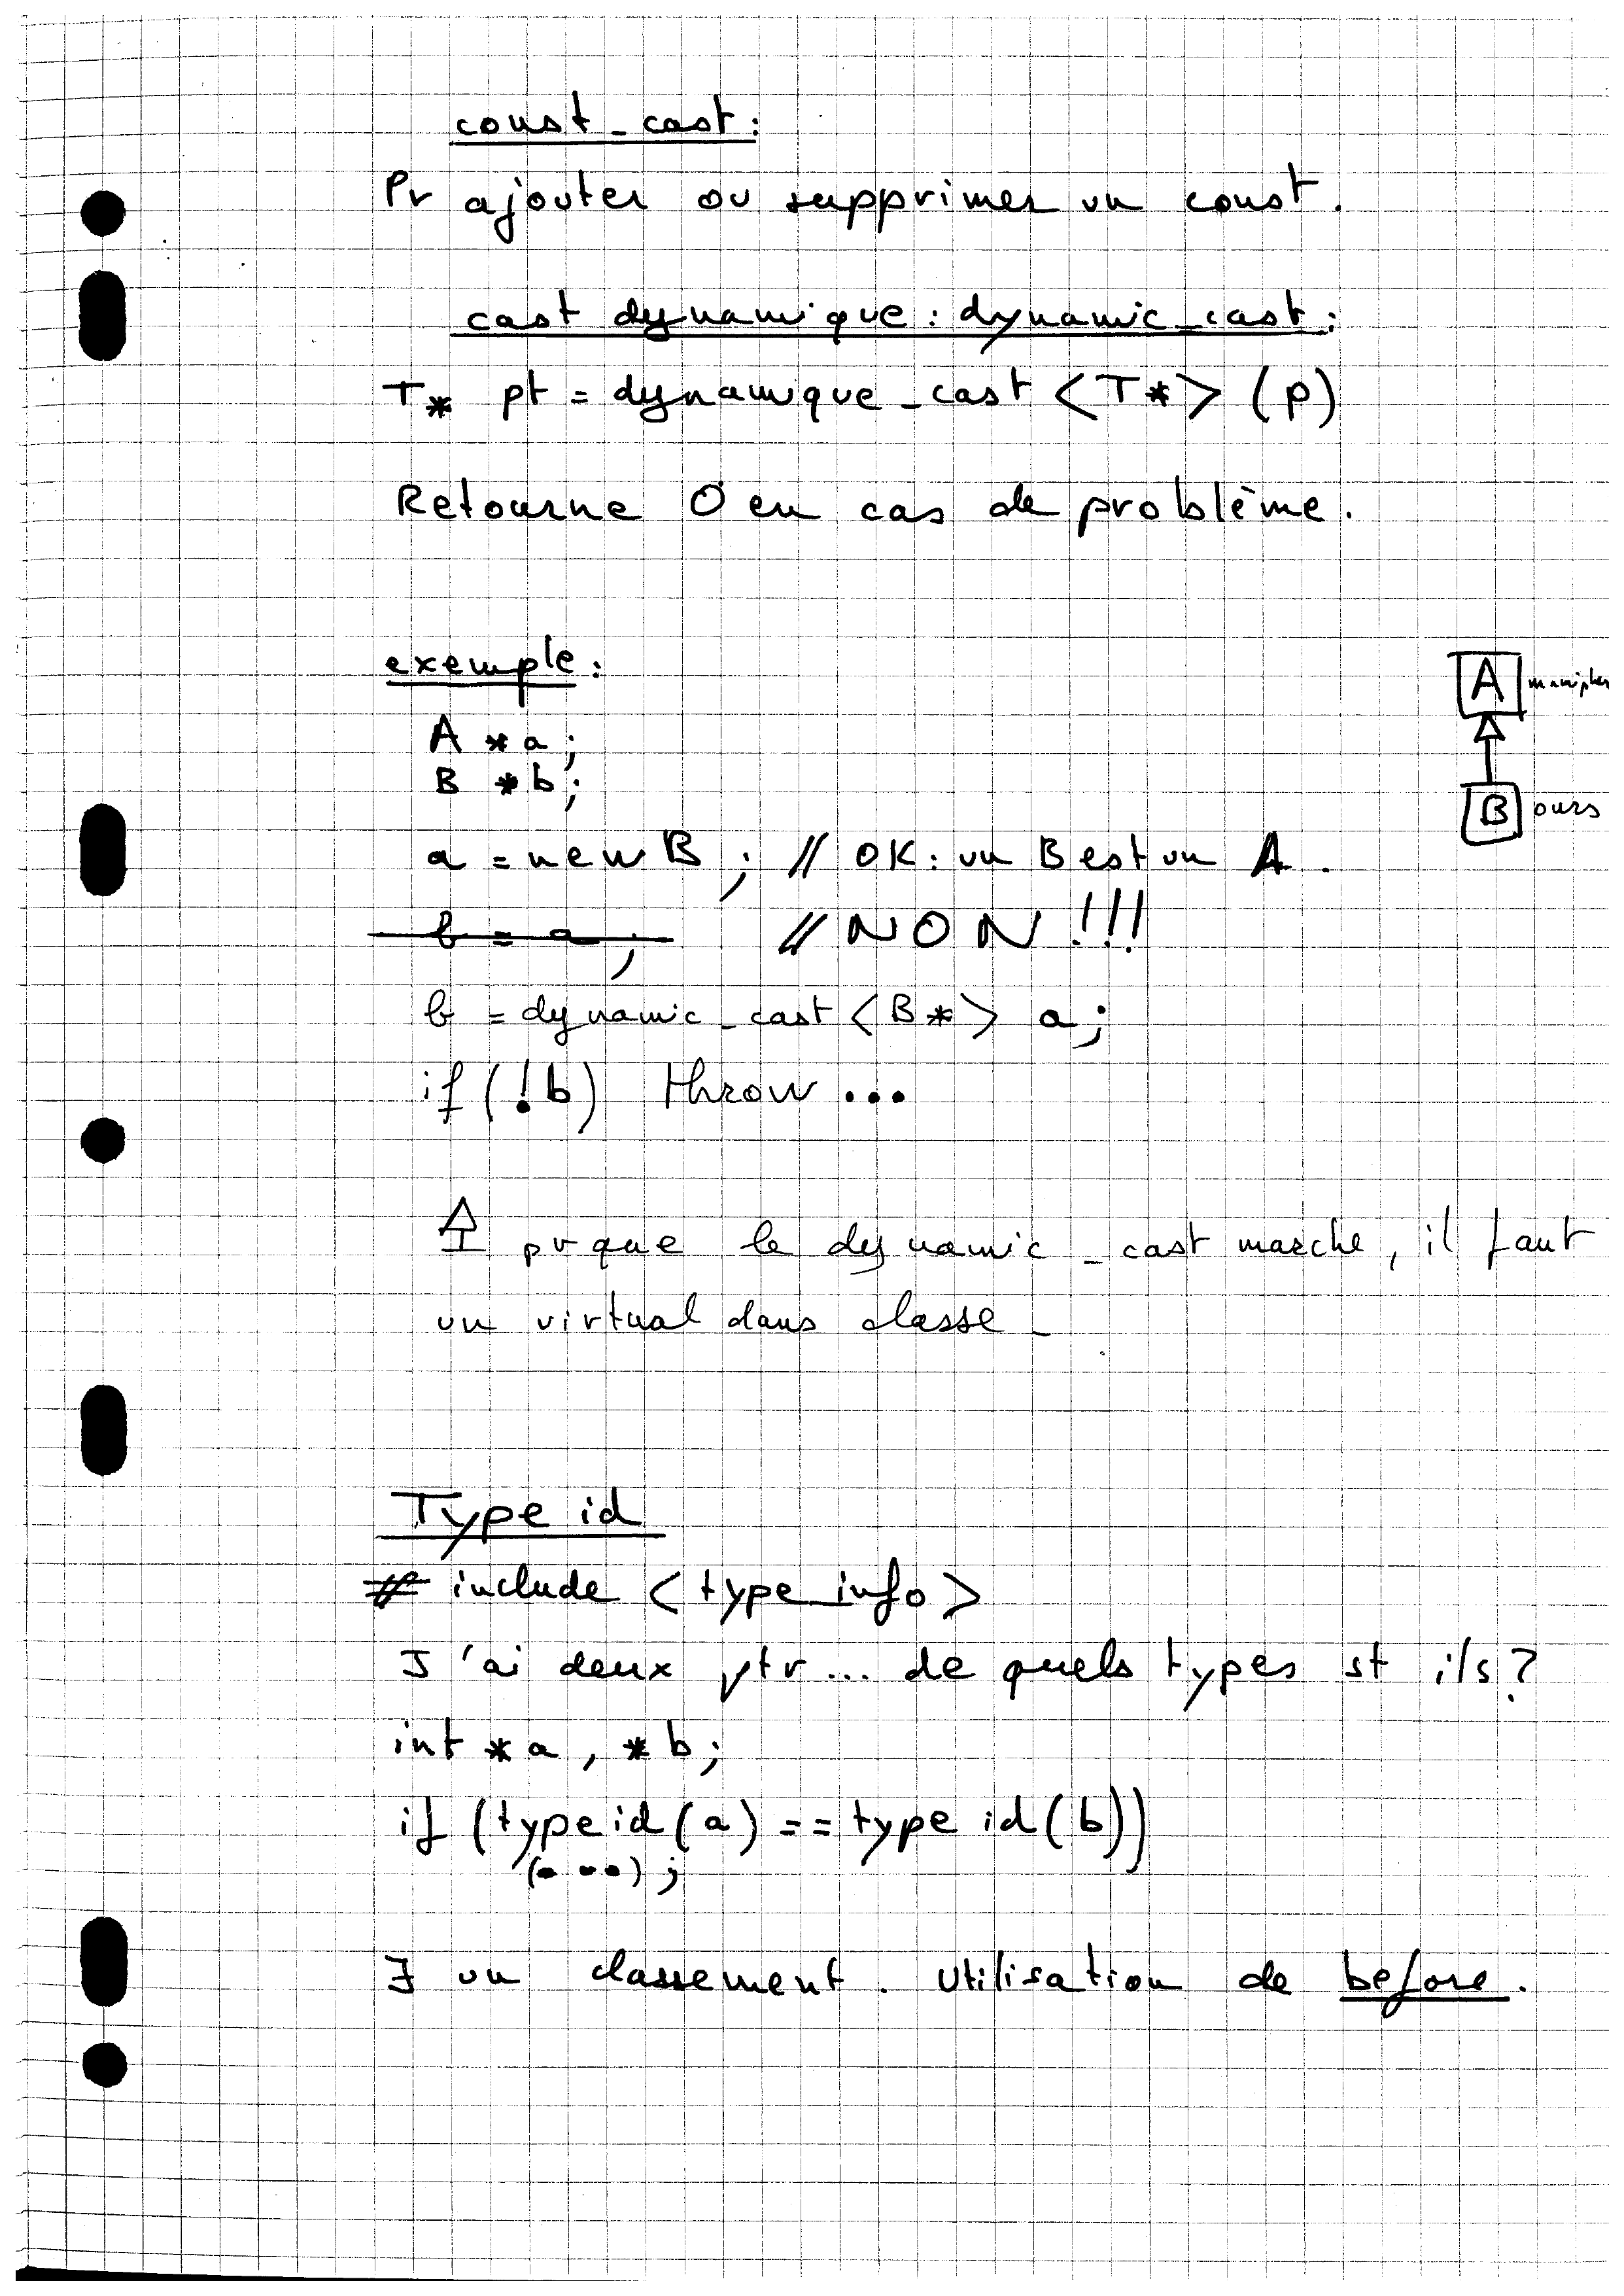 const_cast:
Pr ajouter ou supprimer un const.
cast dynamique : dynamic_cast :
T* pt = dynamique_cast <T*> (p)
Retourne 0 en cas de problème.
exemple :
A
A *a;
B *b;
B ours
a = new B ; // OK : un B est un A.
b = a ; // NON !!!
b = dynamic_cast <B*> a;
if (!b) throw ...
pr que le dynamic_cast marche, il faut
un virtual dans classe_
Type id
# include <type_info>
J'ai deux ptr... de quels types st ils?
int *a, *b;
if (typeid(a) == type id(b))
(...);
∃ un classement. Utilisation de before.